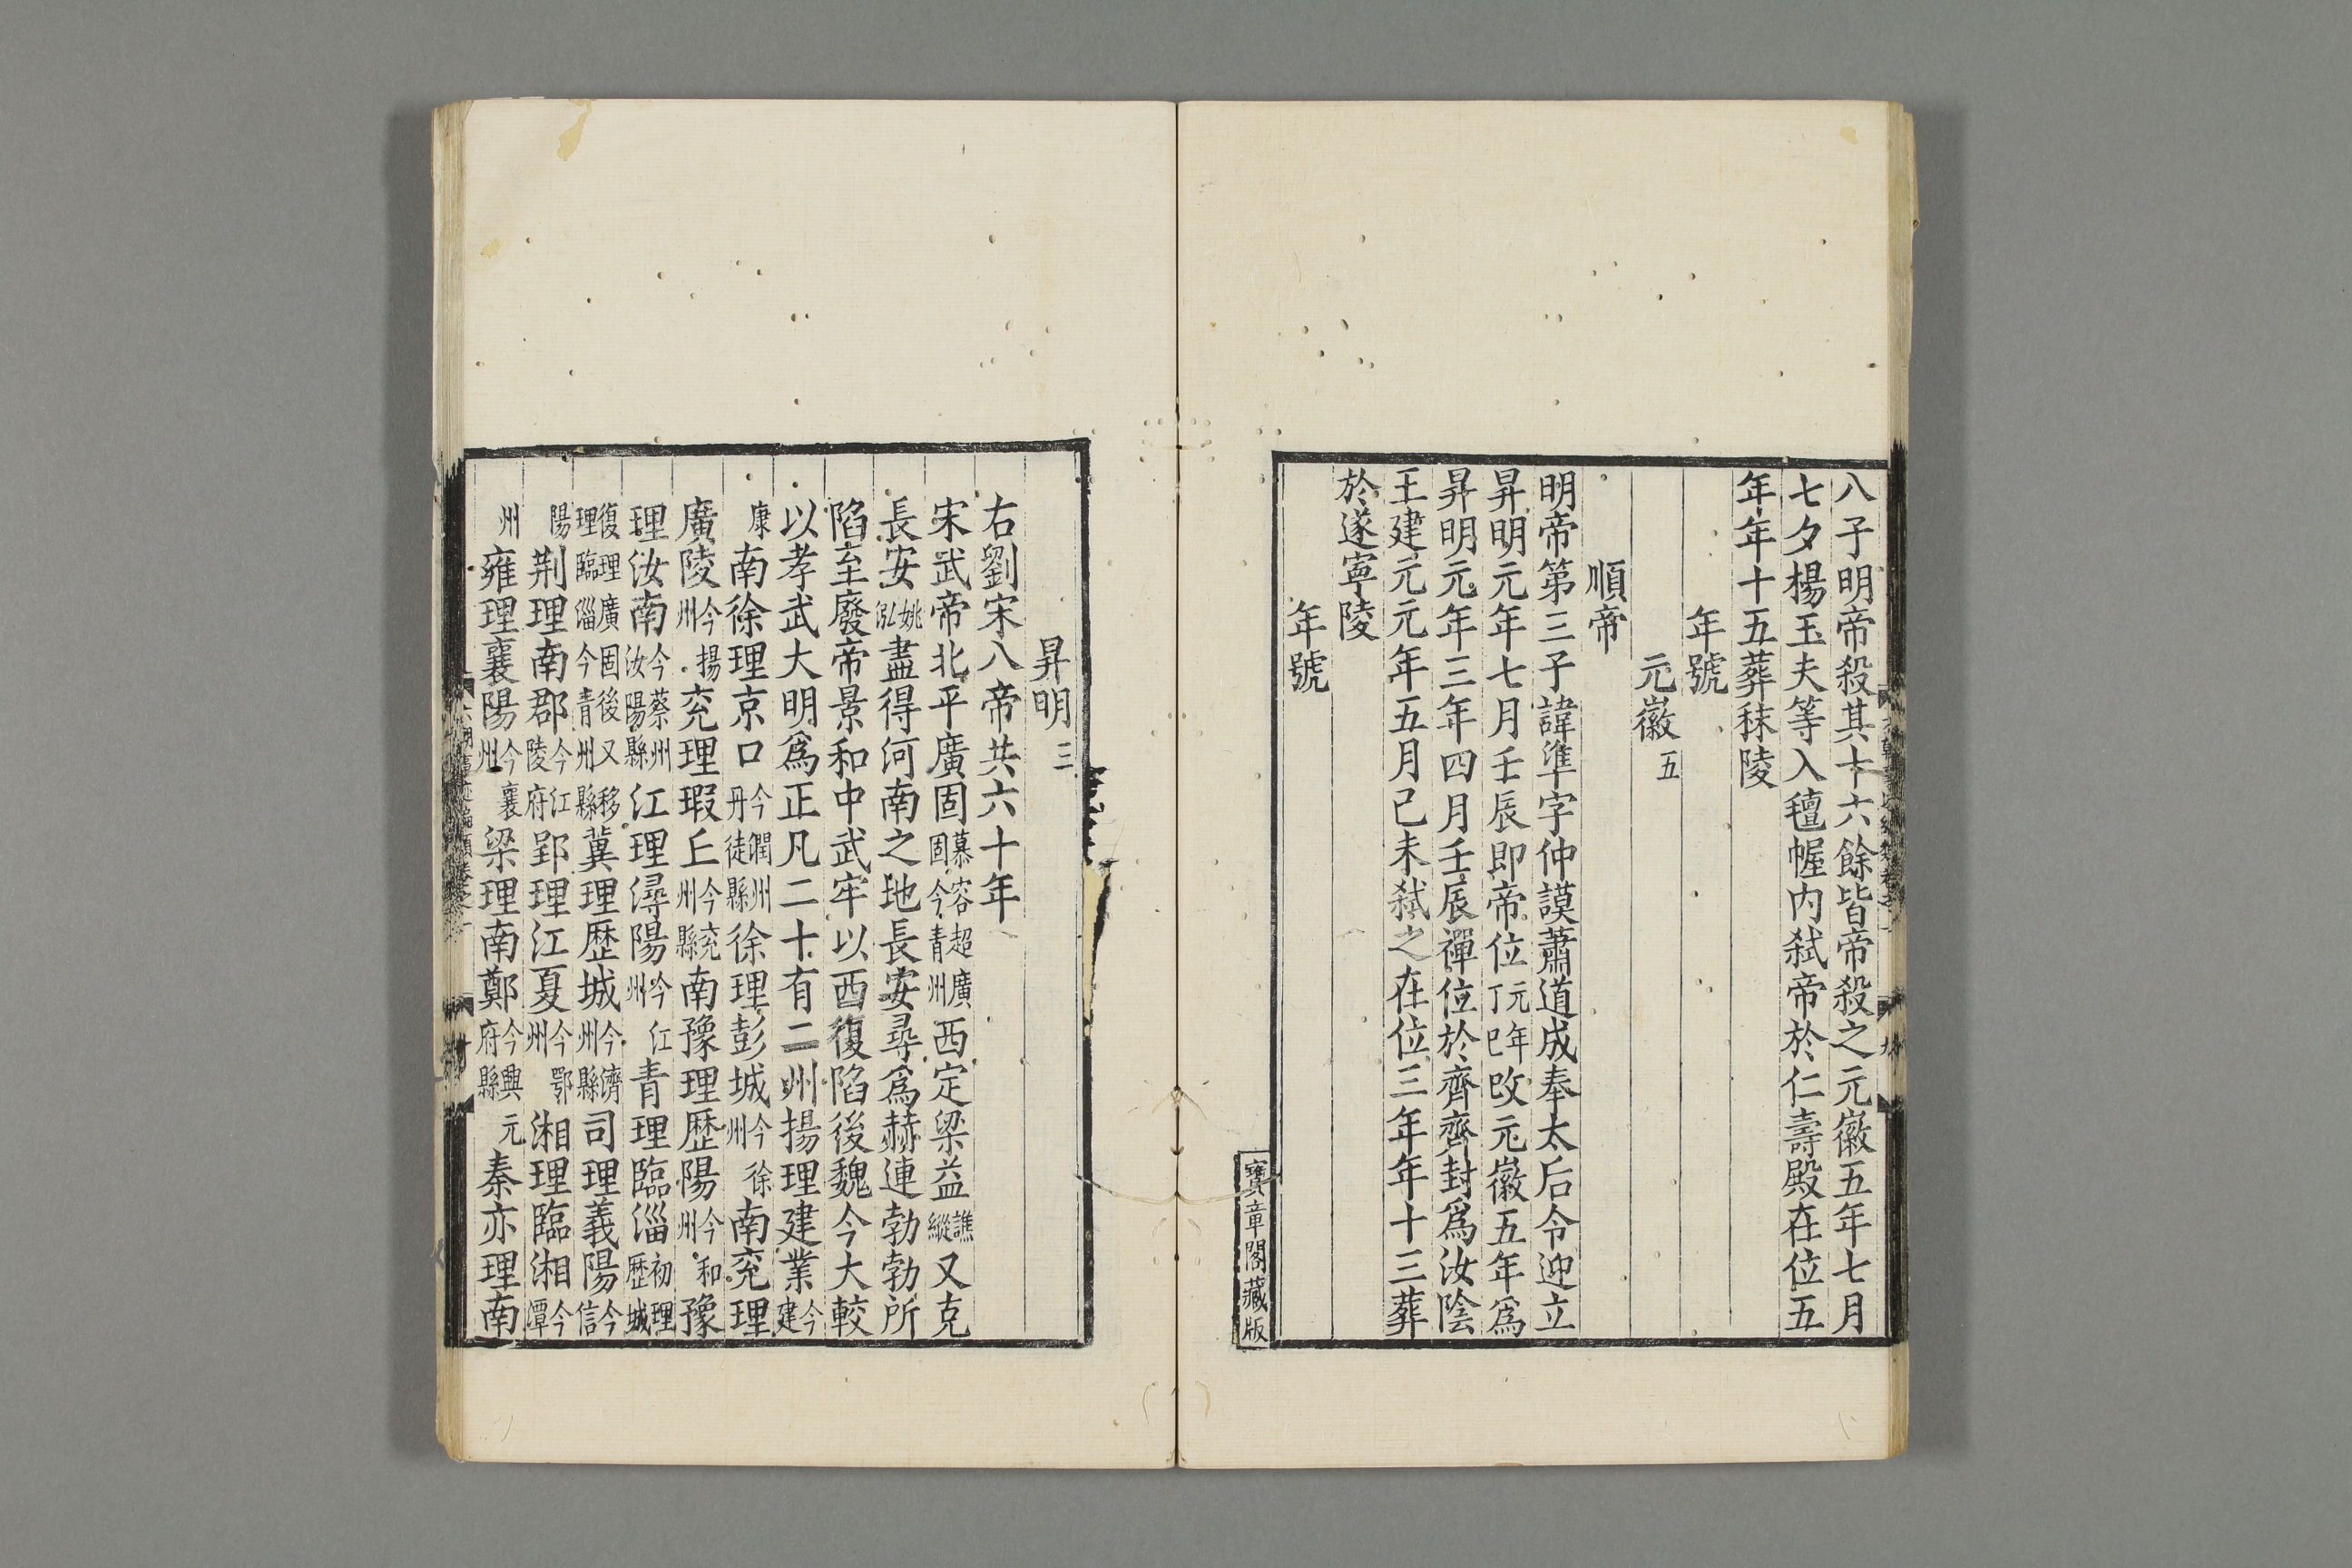 八子明帝殺其十六餘皆帝殺之元徽五年七月
七夕楊玉夫等入氊幄内弑帝於仁壽殿在位五
年年十五葬秣陵
年號
元徽五
順帝
明帝第三子諱準字仲謨蕭道成奉太后令迎立
昇明元年七月壬辰即帝位元年丁巳改元徽五年爲
昇明元年三年四月壬辰禪位於齊齊封爲汝陰
王建元元年五月己未弑之在位三年年十三葬
於遂寧陵
年號
寶章閣藏版
昇明三
右劉宋八帝共六十年
宋武帝北平廣固慕容超廣固今青州西定梁益譙縱又克
長安姚泓盡得河南之地長安尋爲赫連勃勃所
陷至廢帝景和中武牢以西復陷後魏今大較
以孝武大明爲正凡二十有二州揚理建業今建
康南徐理京口今潤州丹徒縣徐理彭城今徐州南兖理
廣陵今揚州兖理瑕丘今兖州縣南豫理歷陽今和州豫
理汝南今蔡州汝陽縣江理潯陽今江州青理臨淄初理歷城
復理廣固後又移理臨淄今青州縣冀理歷城今濟州縣司理義陽今信
陽荆理南郡今江陵府郢理江夏今鄂州湘理臨湘今潭
州雍理襄陽今襄州梁理南鄭今興元府縣秦亦理南